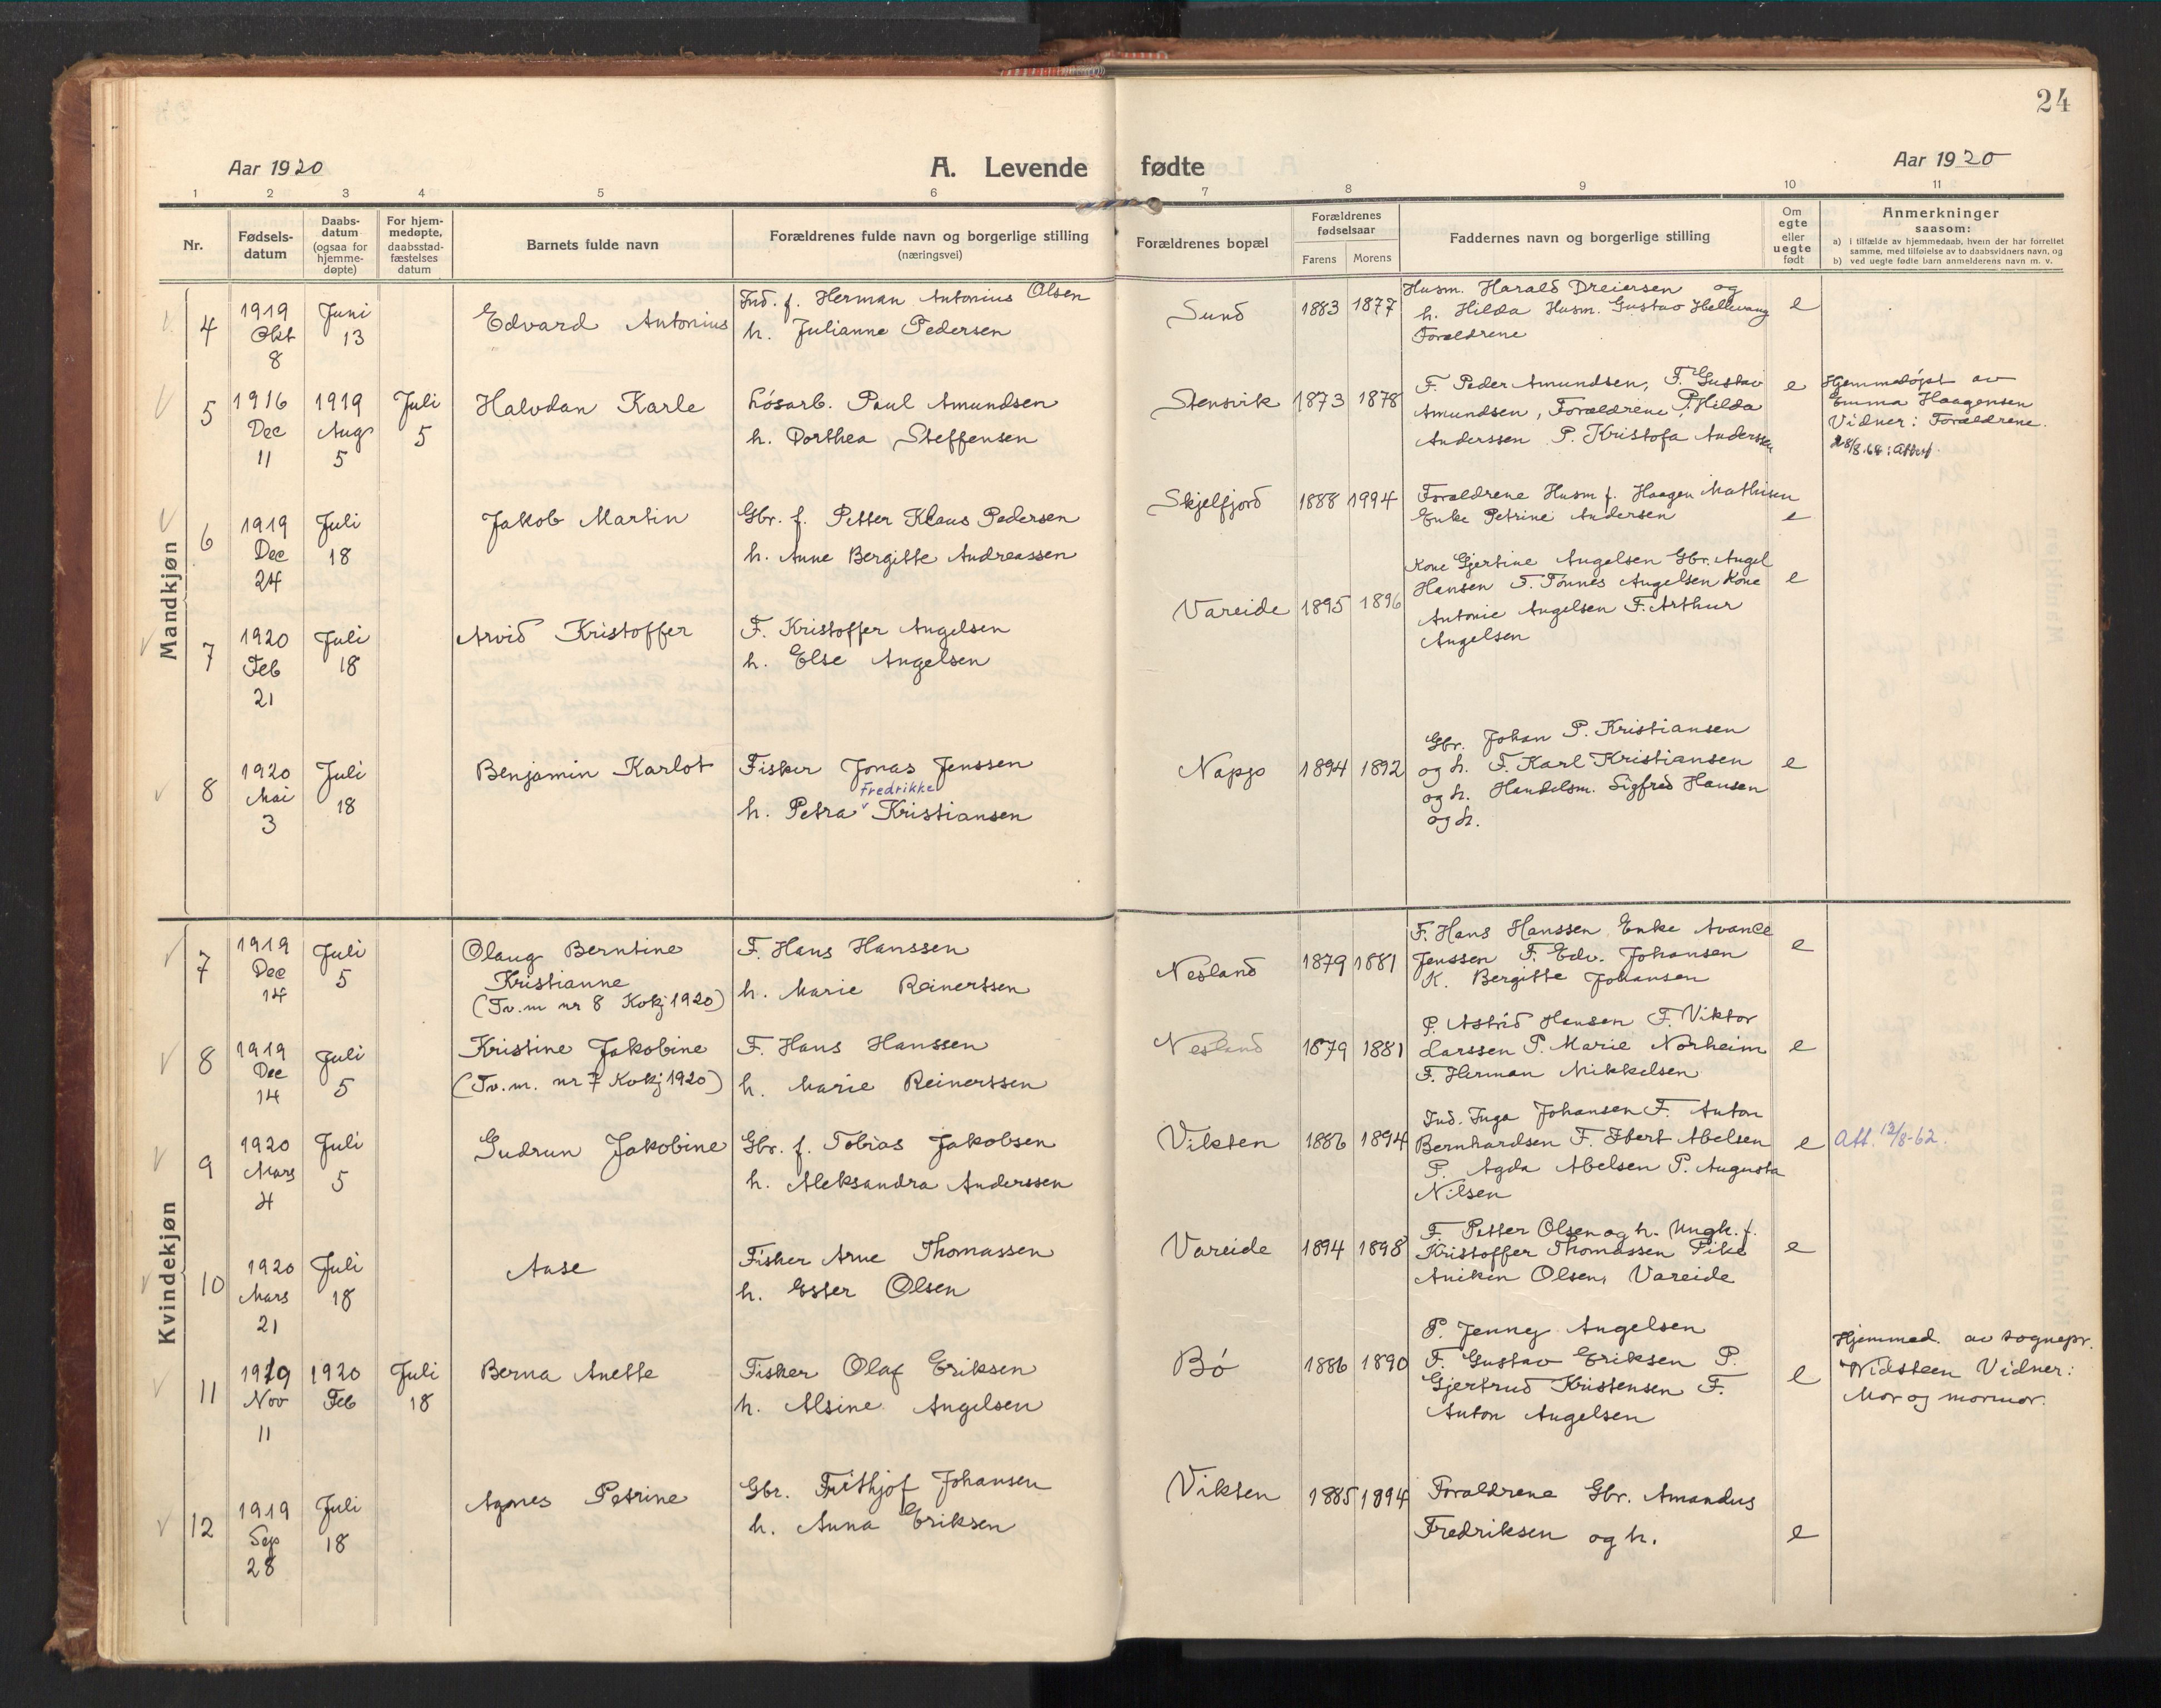 24
Aar 1920
A. Levende fødte
Aar 1920
1 2 3 4 5 6 7 8 9 10 11
Nr.
Fødsels-
datum
Daabs-
datum
(ogsaa for
hjemme-
døpte)
For hjem-
medøpte,
daabsstad-
fæstelses
datum
Barnets fulde navn
Forældrenes fulde navn og borgerlige stilling
(næringsvei)
Forældrenes bopæl
Forældrenes
fødselsaar
Farens Morens
Faddernes navn og borgerlige stilling
Om
egte
eller
uegte
født
Anmerkninger
saasom:
a) i tilfælde av hjemmedaab, hvem der har forrettet
samme, med tilføielse av to daabsvidners navn, og
b) ved uegte fødte barn anmelderens navn m. v.
Mandkjøn
4
1919
Okt
8
Juni
13
Edvard Antonius
Ind. f. Herman Antonius Olsen
h. Julianne Pedersen
Sund
1883 1877
Husm. Harald Dreiersen og
h. Hilda Husm. Gustav Hellevang
Forældrene
e
5
1916
Dec
11
1919
Aug
5
Juli
5
Halvdan Karle
Løsarb. Paul Amundsen
h. Dorthea Steffensen
Stensvik
1873 1878
F. Peder Amundsen, F. Gustav
Amundsen, Forældrene, P. Hilda
Anderssen P. Kristofa Anderssen
e
Hjemmedøpt av
Emma Haagensen
Vidner: Forældrene.
28/8.68: Attest.
6
1919
Dec
24
Juli
18
Jakob Martin
Gbr. f. Petter Klaus Pedersen
h. Anne Bergitte Andreassen
Skjelfjord
1888 1994
Forældrene Husm f. Haagen Mathisen
Enke Petrine Andersen
e
7
1920
Feb
21
Juli
18
Arvid Kristoffer
F. Kristoffer Angelsen
h. Else Angelsen
Vareide
1895 1896
Kone Gjertine Angelsen Gbr. Angel
Hansen F. Tønnes Angelsen Kone
Antonie Angelsen F. Arthur
Angelsen
e
8
1920
Mai
3
Juli
18
Benjamin Karlot
Fisker Jonas Jenssen
Fredrikke
h. Petra v Kristiansen
Napp
1894 1892
Gbr. Johan P. Kristiansen
og h. F. Karl Kristiansen
og h. Handelsm. Sigfred Hansen
og h.
e
Kvindekjøn
7
1919
Dec
14
Juli
5
Olaug Berntine
Kristianne
(Tv. m nr 8 Kvkj 1920)
F. Hans Hanssen
h. Marie Reinertsen
Nesland
1879 1881
F. Hans Hanssen Enke Avance
Jenssen F. Edv. Johansen
K. Bergitte Johansen
e
8
1919
Dec
14
Juli
5
Kristine Jakobine
(Tv. m. nr 7 Kvkj 1920)
F. Hans Hanssen
h. Marie Reinerssen
Nesland
1879 1881
P. Astrid Hansen F. Viktor
Larssen P. Marie Norheim
F. Herman Mikkelsen
e
9
1920
Mars
4
Juli
5
Gudrun Jakobine
Gbr. f. Tobias Jakobsen
h. Aleksandra Anderssen
Vikten
1886 1894
Ind. Inga Johansen F. Anton
Bernhardsen F. Ebert Abelsen
P. Agda Abelsen P. Augusta
Nilsen
e
Att. 13/8-62.
10
1920
Mars
21
Juli
18
Aase
Fisker Arne Thomassen
h. Ester Olsen
Vareide
1894 1898
F. Petter Olsen og h. Ungk. f.
Kristoffer Thomassen Pike
Aniken Olsen, Vareide
e
11
1919
Nov
11
1920
Feb
Juli
18
Berna Anette
Fisker Olaf Eriksen
h. Alsine Angelsen
Bø
1886 1890
P. Jenney Angelsen
F. Gustav Eriksen P.
Gjertrud Kristensen F.
Anton Angelsen
e
Hjemmed. av sognepr.
Widsteen Vidner:
Mor og mormor.
12
1919
Sep
28
Juli
18
Agnes Petrine
Gbr. Frithjof Johansen
h. Anna Eriksen
Vikten
1885 1894
Forældrene Gbr. Amandus
Fredriksen og h.
e